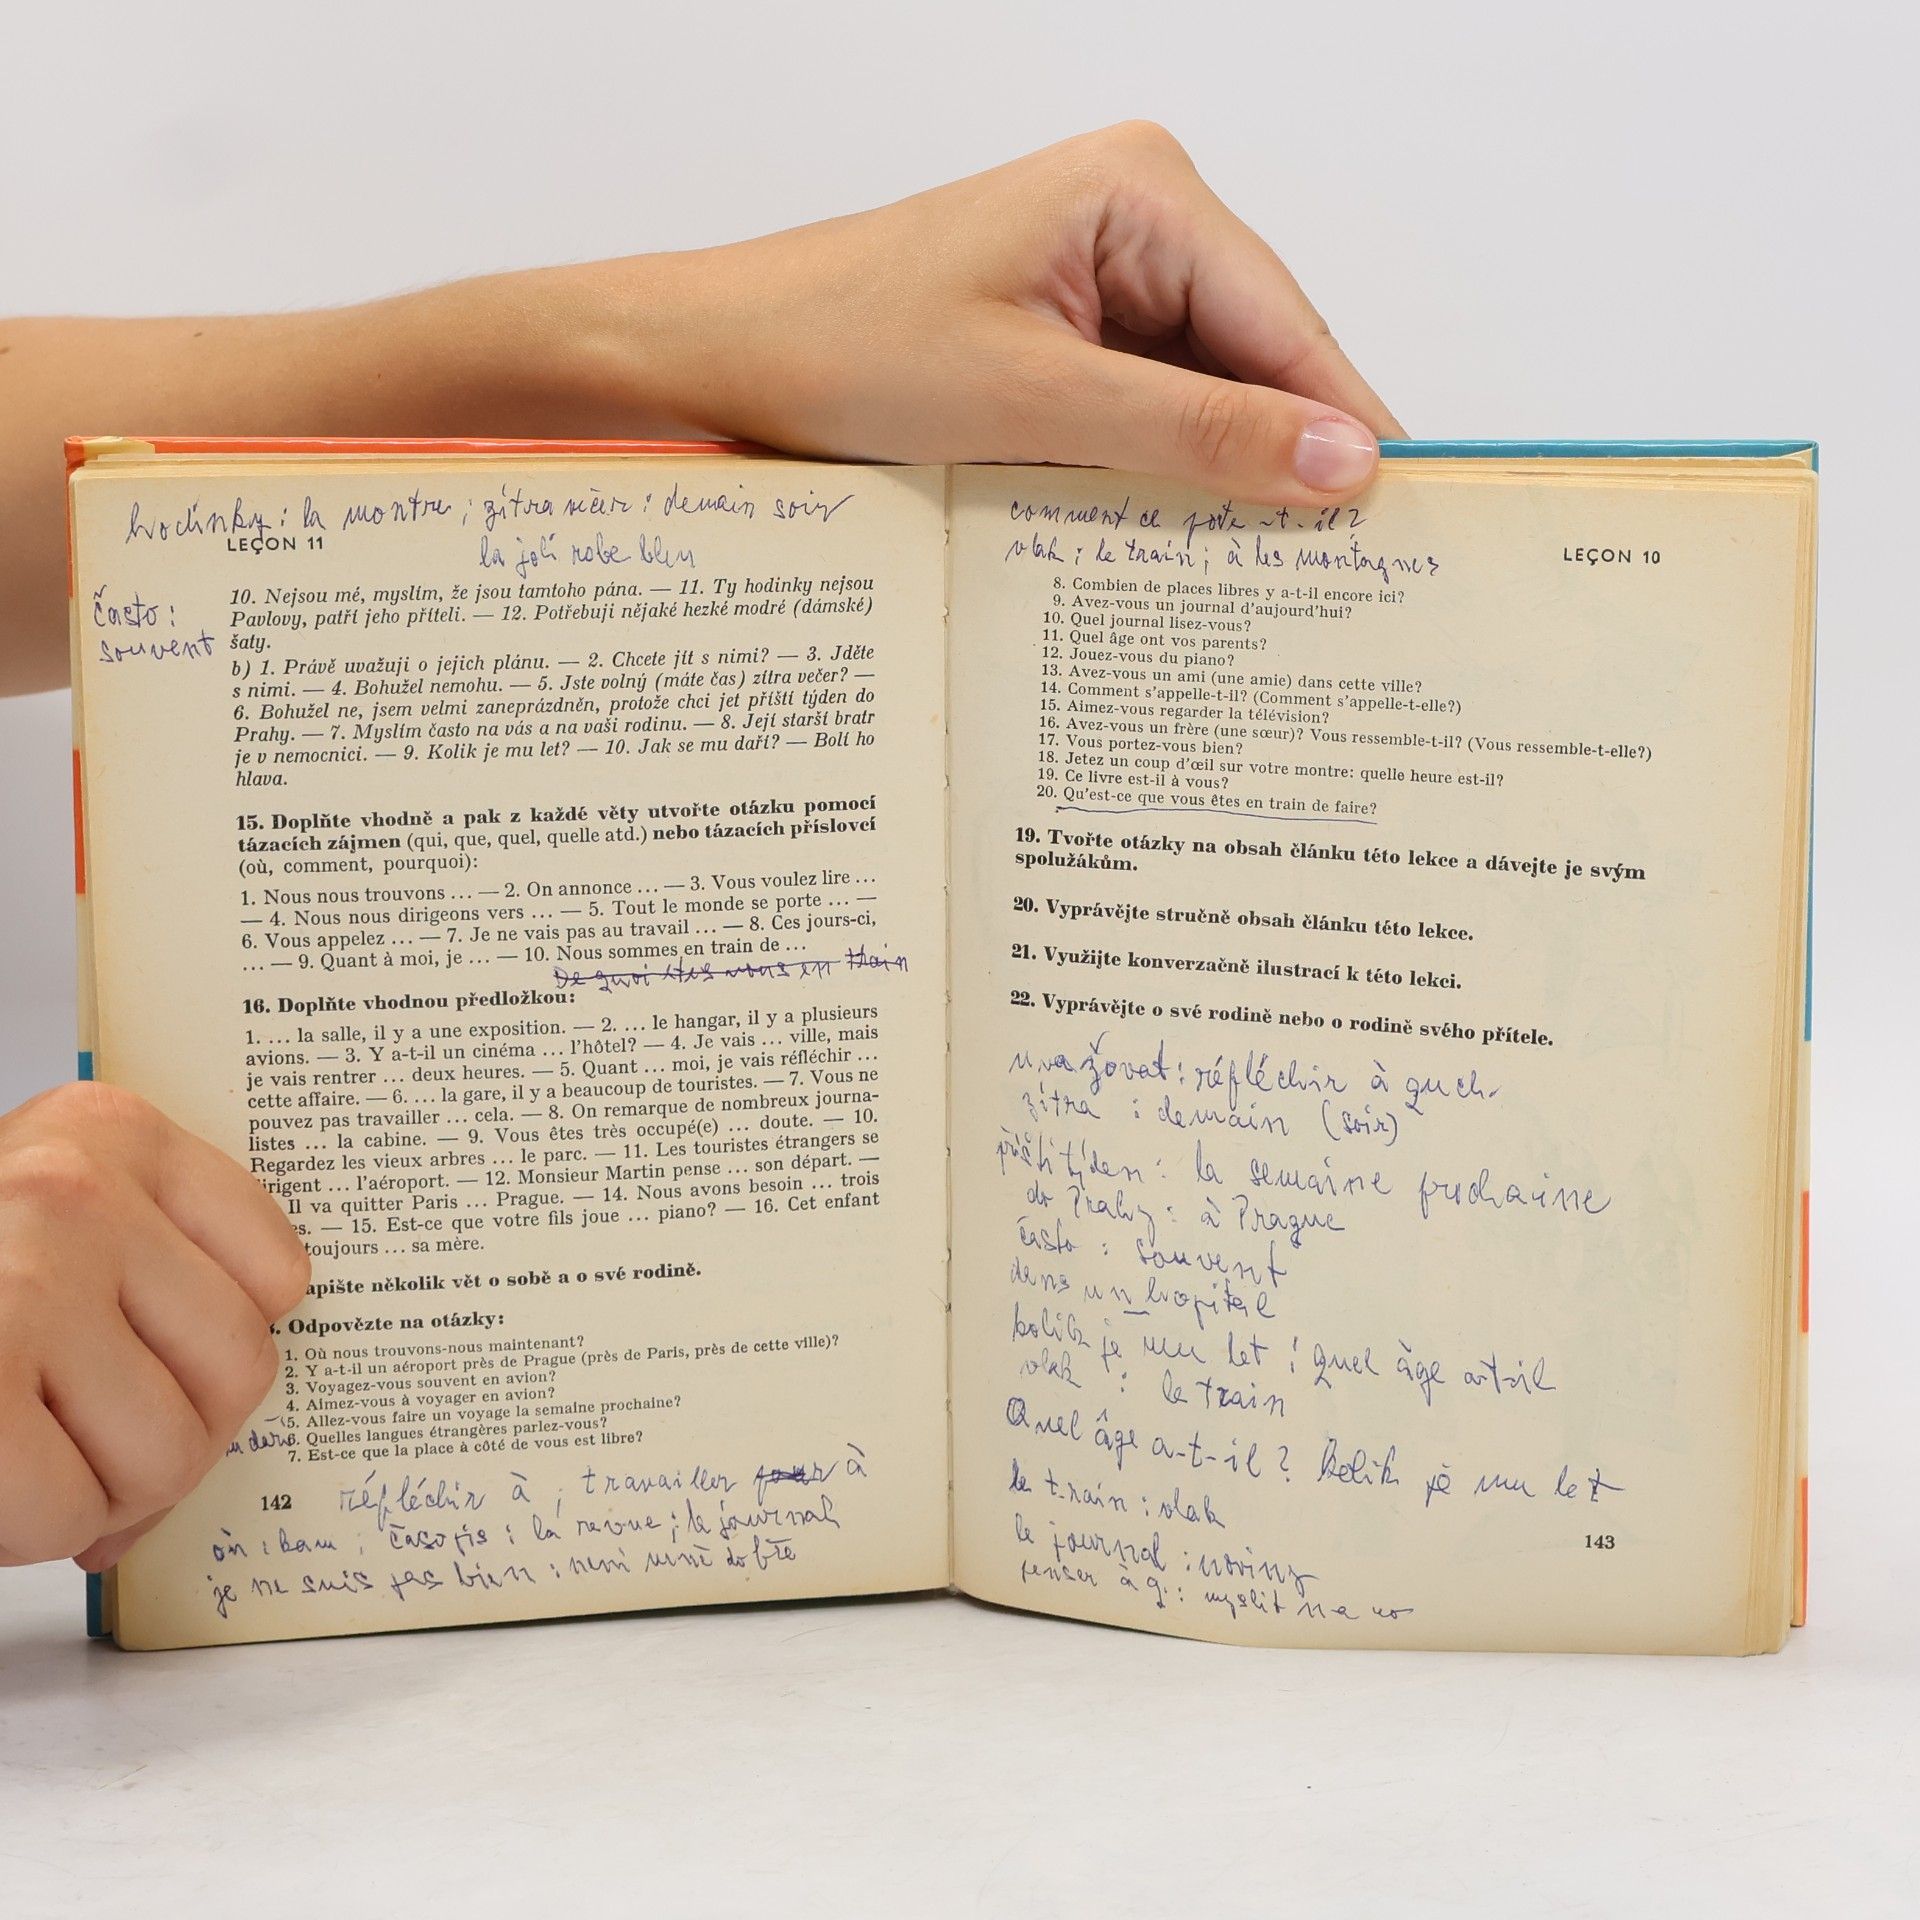 hodinky: la montre; zítra večer: demain soir
la joli robe bleu
LEÇON 11
často:
souvent
10. Nejsou mé, myslím, že jsou tamtoho pána. — 11. Ty hodinky nejsou
Pavlovy, patří jeho příteli. — 12. Potřebuji nějaké hezké modré (dámské)
šaty.
b) 1. Právě uvažuji o jejich plánu. — 2. Chcete jít s nimi? — 3. Jděte
s nimi. — 4. Bohužel nemohu. — 5. Jste volný (máte čas) zítra večer? —
6. Bohužel ne, jsem velmi zaneprázdněn, protože chci jet příští týden do
Prahy. — 7. Myslím často na vás a na vaši rodinu. — 8. Její starší bratr
je v nemocnici. — 9. Kolik je mu let? — 10. Jak se mu daří? — Bolí ho
hlava.
15. Doplňte vhodně a pak z každé věty utvořte otázku pomocí
tázacích zájmen (qui, que, quel, quelle atd.) nebo tázacích příslovcí
(où, comment, pourquoi):
1. Nous nous trouvons ... — 2. On annonce ... — 3. Vous voulez lire ...
— 4. Nous nous dirigeons vers ... — 5. Tout le monde se porte ... —
6. Vous appelez ... — 7. Je ne vais pas au travail ... — 8. Ces jours-ci,
... — 9. Quant à moi, je ... — 10. Nous sommes en train de ...
De quoi êtes vous en train
16. Doplňte vhodnou předložkou:
1. ... la salle, il y a une exposition. — 2. ... le hangar, il y a plusieurs
avions. — 3. Y a-t-il un cinéma ... l'hôtel? — 4. Je vais ... ville, mais
je vais rentrer ... deux heures. — 5. Quant ... moi, je vais réfléchir ...
cette affaire. — 6. ... la gare, il y a beaucoup de touristes. — 7. Vous ne
pouvez pas travailler ... cela. — 8. On remarque de nombreux journa-
listes ... la cabine. — 9. Vous êtes très occupé(e) ... doute. — 10.
Regardez les vieux arbres ... le parc. — 11. Les touristes étrangers se
dirigent ... l'aéroport. — 12. Monsieur Martin pense ... son départ. —
Il va quitter Paris ... Prague. — 14. Nous avons besoin ... trois
es. — 15. Est-ce que votre fils joue ... piano? — 16. Cet enfant
toujours ... sa mère.
apište několik vět o sobě a o své rodině.
. Odpovězte na otázky:
1. Où nous trouvons-nous maintenant?
2. Y a-t-il un aéroport près de Prague (près de Paris, près de cette ville)?
3. Voyagez-vous souvent en avion?
4. Aimez-vous à voyager en avion?
5. Allez-vous faire un voyage la semaine prochaine?
6. Quelles langues étrangères parlez-vous?
7. Est-ce que la place à côté de vous est libre?
142
réfléchir à; travailler pour à
où: kam; časopis: la revue; le journal
je ne suis pas bien: není mně dobře
comment ce porte-t-il?
vlak: le train; à les montagnes
LEÇON 10
8. Combien de places libres y a-t-il encore ici?
9. Avez-vous un journal d'aujourd'hui?
10. Quel journal lisez-vous?
11. Quel âge ont vos parents?
12. Jouez-vous du piano?
13. Avez-vous un ami (une amie) dans cette ville?
14. Comment s'appelle-t-il? (Comment s'appelle-t-elle?)
15. Aimez-vous regarder la télévision?
16. Avez-vous un frère (une sœur)? Vous ressemble-t-il? (Vous ressemble-t-elle?)
17. Vous portez-vous bien?
18. Jetez un coup d'œil sur votre montre: quelle heure est-il?
19. Ce livre est-il à vous?
20. Qu'est-ce que vous êtes en train de faire?
19. Tvořte otázky na obsah článku této lekce a dávejte je svým
spolužákům.
20. Vyprávějte stručně obsah článku této lekce.
21. Využijte konverzačně ilustrací k této lekci.
22. Vyprávějte o své rodině nebo o rodině svého přítele.
uvažovat: réfléchir à quch.
zítra: demain (soir)
příští týden: la semaine prochaine
do Prahy: à Prague
často: souvent
dans un hopital
kolik je mu let: quel âge a-t-il
vlak: le train
Quel âge a-t-il? Kolik je mu let
le train: vlak
le journal: noviny
143
penser à q.: myslit na co